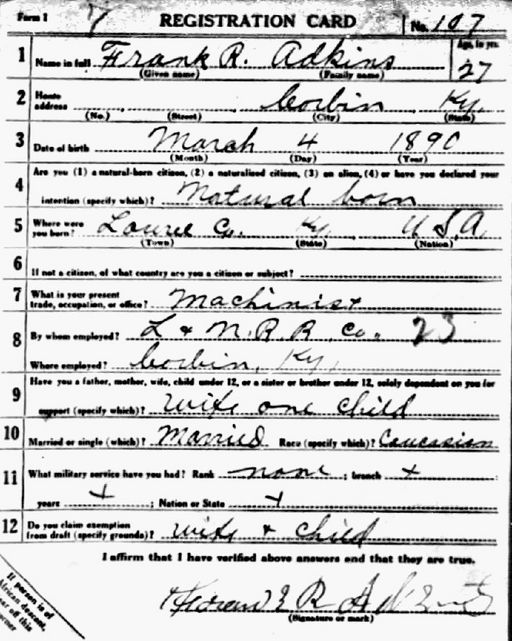 Form 1 REGISTRATION CARD No. 107
1 Name in full Frank R. Adkins Age, in yrs. 27
(Given name) (Family name)
2 Home address Corbin Ky.
(No.) (Street) (City) (State)
3 Date of birth March 4 1890
(Month) (Day) (Year)
4 Are you (1) a natural-born citizen, (2) a naturalized citizen, (3) an alien, (4) or have you declared your
intention (specify which)? Natural born
5 Where were you born? Laurel Co. Ky. U S A.
(Town) (State) (Nation)
6 If not a citizen, of what country are you a citizen or subject?
7 What is your present trade, occupation, or office? Machinist
8 By whom employed? L & N. R R. Co. 23
Where employed? Corbin, Ky.
9 Have you a father, mother, wife, child under 12, or a sister or brother under 12, solely dependent on you for
support (specify which)? Wife one child
10 Married or single (which)? Married Race (specify which)? Caucasian
11 What military service have you had? Rank none ; branch +
years + ; Nation or State +
12 Do you claim exemption from draft (specify grounds)? Wife & child
I affirm that I have verified above answers and that they are true.
(Signature or mark)
If person is of
African descent,